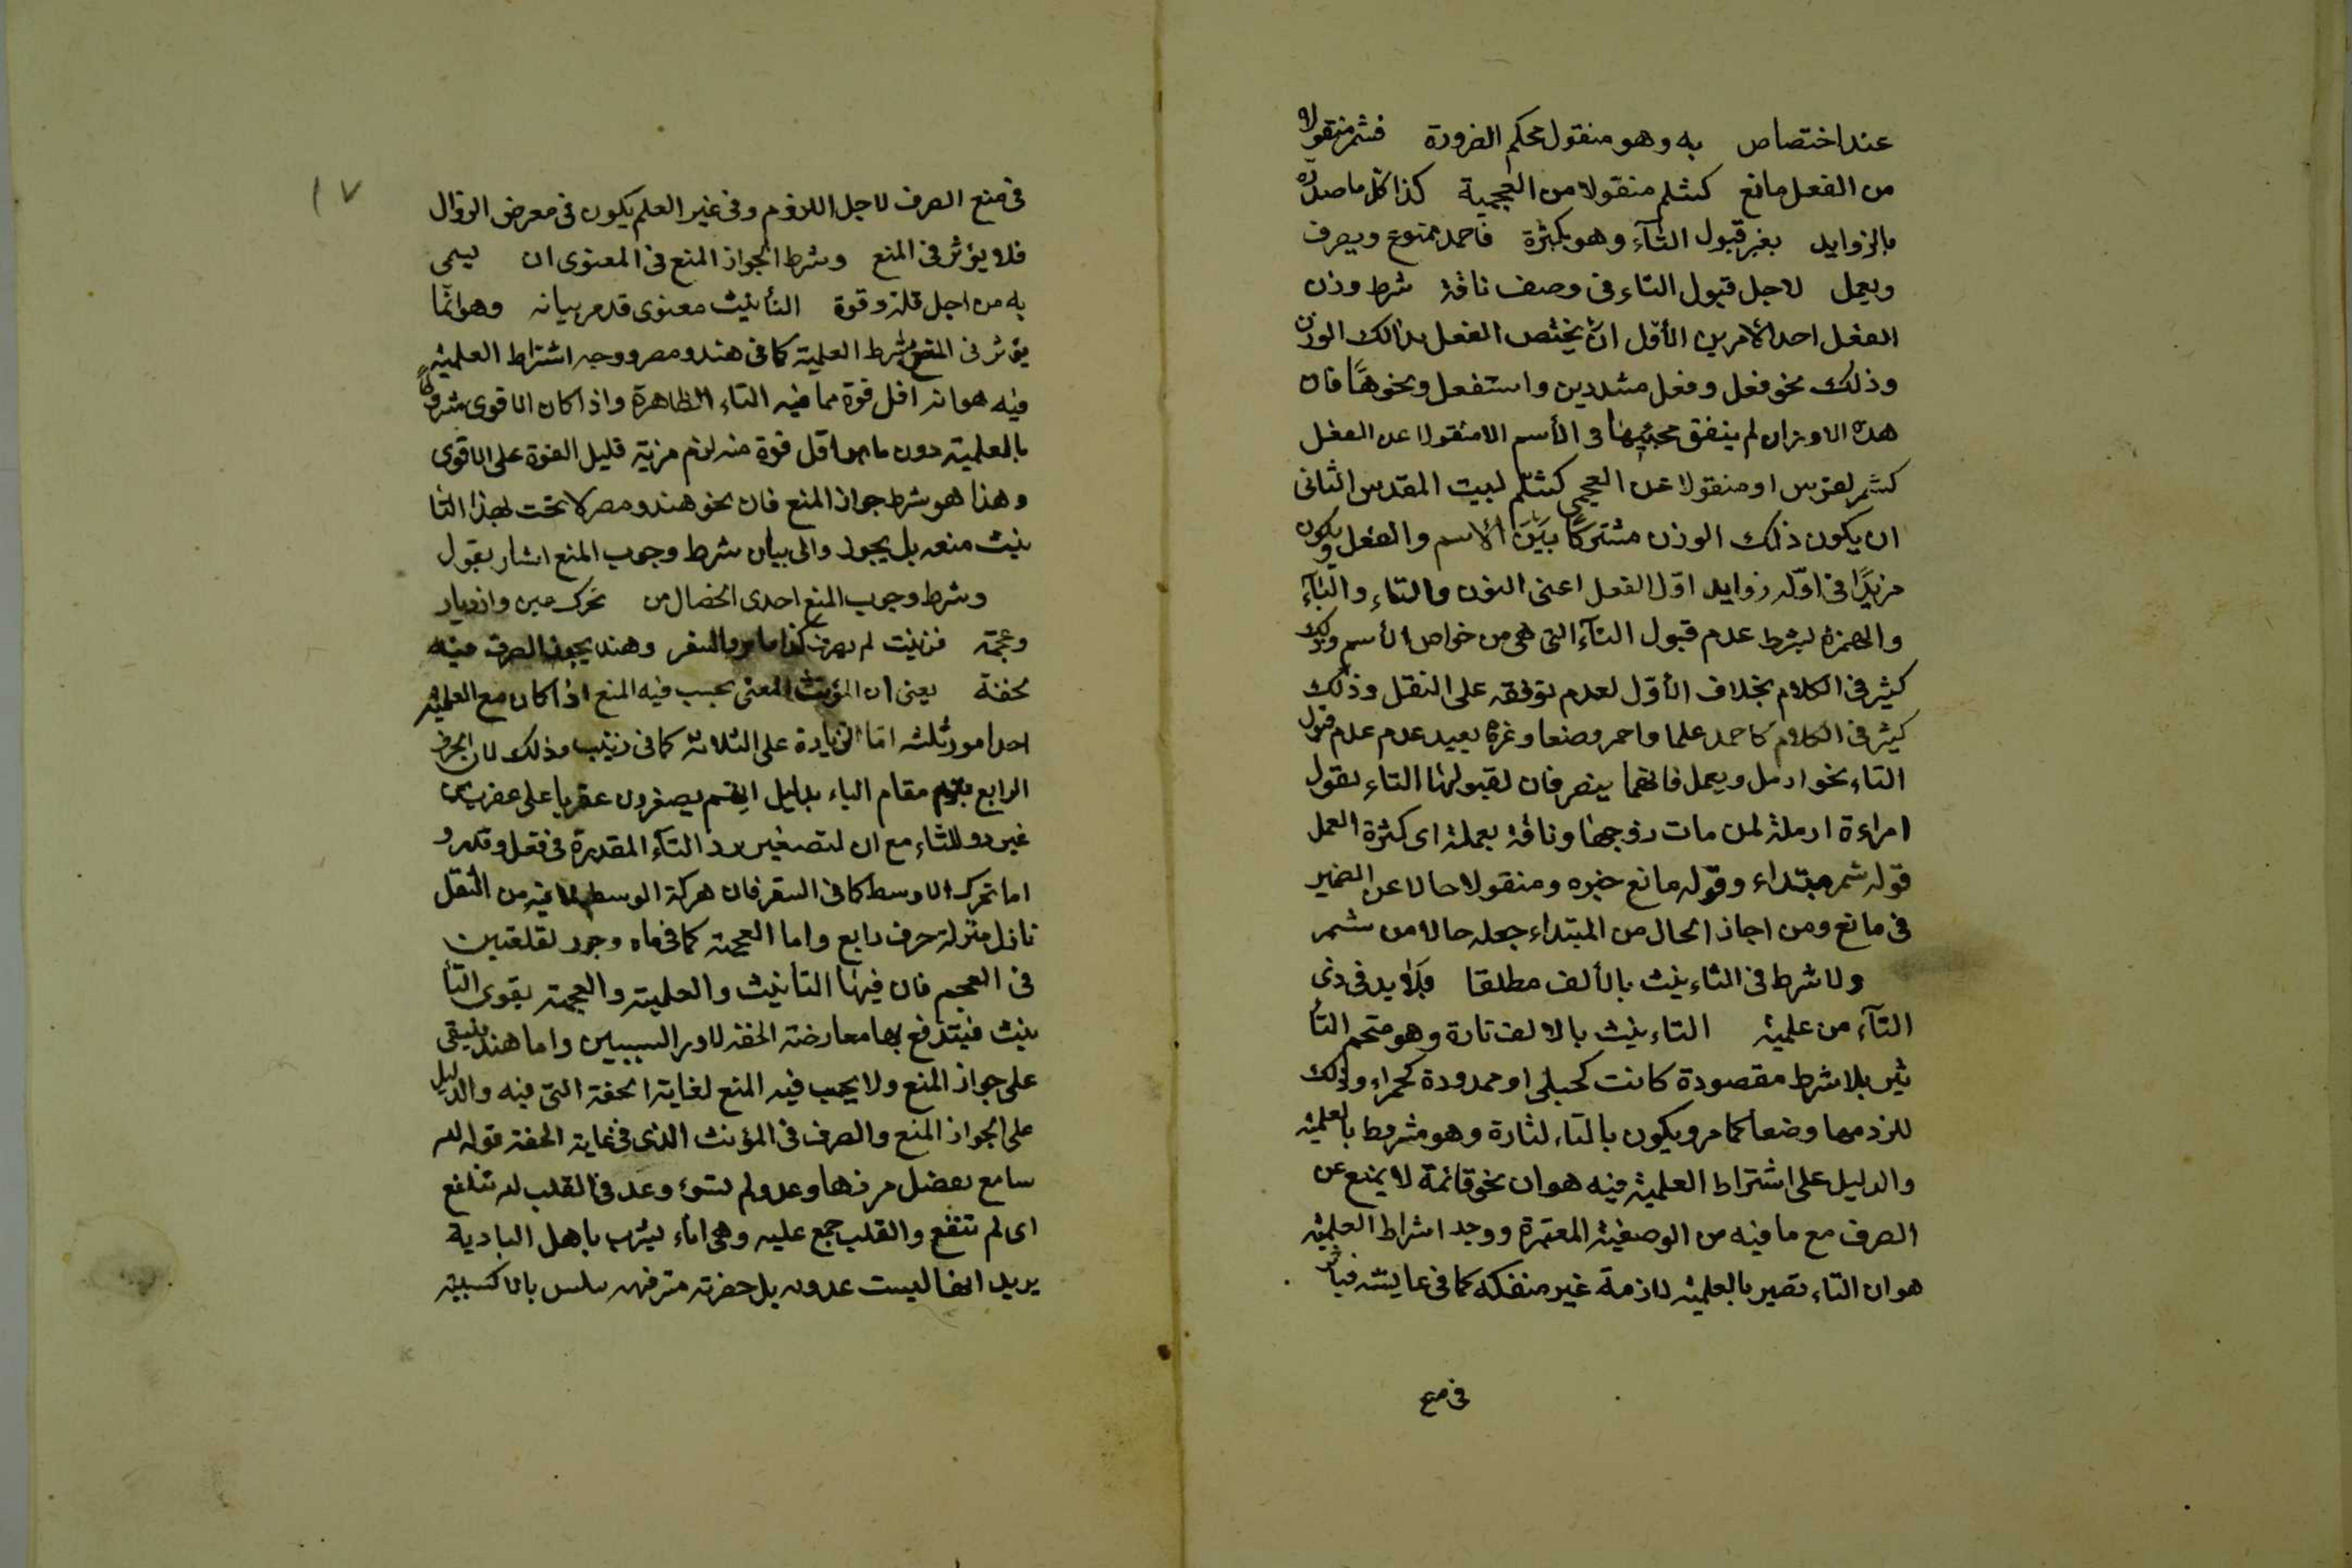 عند اختصاص به وهو منقول بحكم الضرورة فشمر منقولا
من الفعل مانع كشلم منقولا من العجمية كذا كل ما صدره
بالزوايد بغير قبول التآء وهو بكثرة فاحمد ممنوع ويصرف
ويعمل لاجل قبول التاء فى وصف ناقة شرط وزن
الفعل احد الامرين الأوّل ان يختص الفعل بذالك الوزن
وذلك نحو فعل وفعل مشددين واستفعل ونحوهاً فان
هذه الاوزان لم يتفق مجيئها فى الأسم الا منقولا عن الفعل
كشمر لفرس او منقولا عن العجمى كشلّم لبيت المقدس الثانى
ان يكون ذلك الوزن مشتركاً بَيْنَ الأسم والفعل ويكون
مزيداً فى اوّله زوايد اوّل الفعل اعنى النون والتاء والتآء
والهمزة بشرط عدم قبول التآء التى هى من خواص الأسم وذلك
كثير فى الكلام بخلاف الأوّل لعدم توقفه على النقل وذلك
كثير فى الكلام كاحمد علما واحمر وصفا وغره بعيد عدم عدم قبول
التاء نحو ارمل ويعمل فانهما ينصرفان لقبولها التاء بقول
امراءة ارملة لمن مات زوجها وناقة يعملة اى كثرة العمل
قوله شمر مبتداء وقوله مانع خبره ومنقولا حالا عن الضمير
فى مانع ومن اجاز الحال من المبتداء جعله حالا من شمر
ولا شرط فى التاءنيث بالألف مطلقا وَلَابد فى ذى
التآء من علمية التاءنيث بالالف تارة وهو متحم التأ
ثير بلا شرط مقصودة كانت كحبلى او ممدودة كحمراء وذلك
للزومها وضعا كما مر ويكون بالتاء لتارة وهو مشروط بالعلمية
والدليل على اشتراط العلمية فيه هو ان نحو قائمة لا يمنع عن
الصرف مع ما فيه من الوصفية المعتبرة ووجد اشراط العلمية
هو ان التاء تصير بالعلمية لازمة غير منفكه كما فى عايشه فيأثر
فى منع
١٧
فى منع الصرف لاجل اللزوم وفى غير العلم يكون فى معرض الزوال
فلا يؤثر فى المنع وشرط الجواز المنع فى المعنوى ان يسمى
به من اجل قلة وقوة التأنيث معنوى قد مر بيانه وهو انما
يؤثر فى المنع بشرط العلمية كما فى هند ومصر ووجه اشتراط العلمية
فيه هو انه اقل قوة مما فيه التاء الظاهرة واذا كان الاقوى مشروطاً
بالعلمية دون ما هو اقل قوة منه لزم مزية قليل القوة على الاقوى
وهذا هو شرط جواز المنع فان نحو هند ومصر لا تحت لهذا التأ
نيث منعه بل يجوز والى بيان شرط وجوب المنع اشار بقول
وشرط وجوب المنع احدى الخصال من تحرك عين وازدياد
وعجمة فزينت لم يصرف كذا ماه والسفر وهند يجوز الصرف فيه
بخفة يعنى ان المؤنث المعنى يجب فيه المنع اذا كان مع العلمية
احد امور ثلثه امّا الزيادة على الثلاثة كما فى زينب وذلك لان الحرف
الرابع يقوم مقام الياء بدليل انهم يصغرون عقربا على عقريب من
غير رد للتاء مع ان لتصغير يرد التآء المقدرة فى فعل وقدرو
اما تحرك الاوسط كما فى السقر فان هركة الوسط لما فيه من الثقل
نازل منزلة حرف رابع واما العجمة كما فى ماه وجور لقلعتين
فى العجم فان فيها التأنيث والعلمية والعجمة يقوى التأ
نيث فيتدفع بها معارضة الخفة لاور السببين واما هند فيبقى
على جواز المنع ولا يجب فيه المنع لغاية الخفة التى فيه والدليل
على الجواز المنع والصرف فى المؤنث الذى فى غاية الخفة قوله لم
سامع بفضل مرفها وعدو لم تسؤ وعد فى القلب لم تقلفع
اى لم تتقنع والقلب جمع عليه وهى اناء ليشرب باهل البادية
يريد انها ليست عدويه بل حضرته مترفهه ملبس بالاكسية